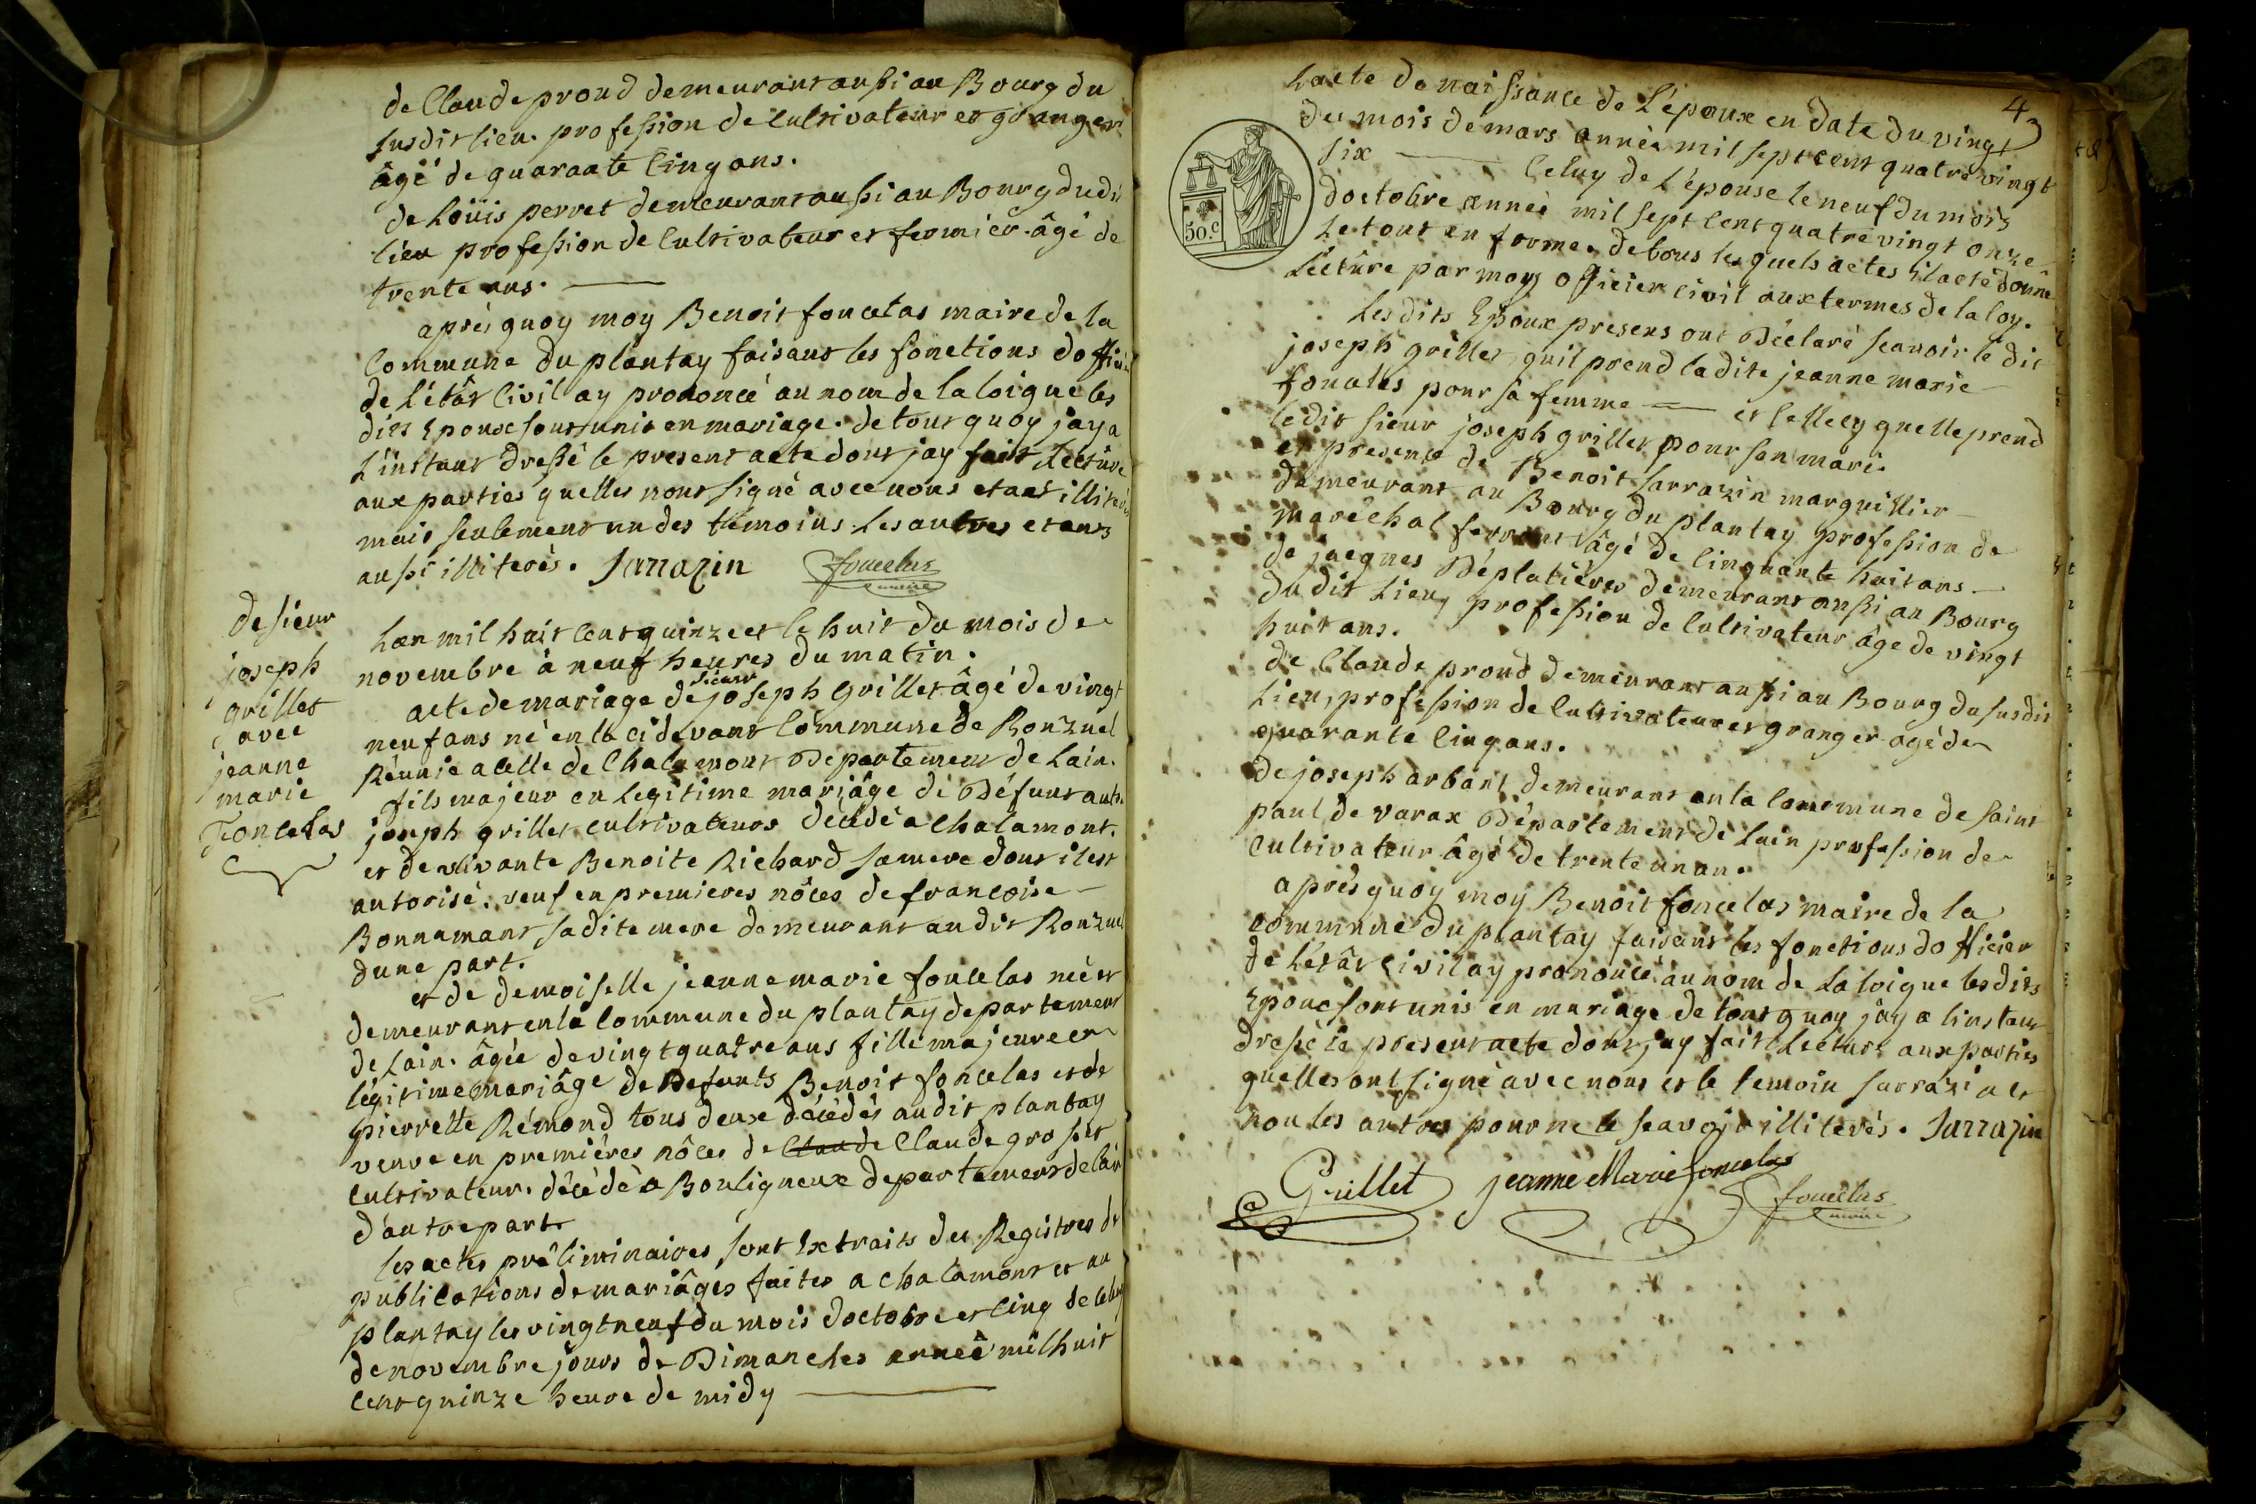 de Claude proud demeurant aussi au Bourg du
susdit lieu. profession de cultivateur et granger
âgé de quaraate cinq ans.
de Loüis perret demeurant aussi au Bourg du dit
lieu profession de cultivateur et fermier âgé de
trente ans.
aprés quoy moy Benoit foncelas maire de la
Commune du plantay faisant les fonctions dofficier
de L'état Civil ay prononcé au nom de la loi que les
dits Epoux sont unis en mariage. de tout quoy jay a
L'instant dressé le present acte dont jay fait Lecture
aux parties quelles nont signé avec nous etant illiterés
mais seulement un des temoins. Les autres etant
aussi illiterés. Sarrazin foncelas
maire
de sieur
joseph
grillet
avec
jeanne
marie
foncelas
Lan mil huit cent quinze et le huit du mois de
novembre à neuf heures du matin.
acte de mariage de sieur joseph Grillet âgé de vingt
neuf ans né en la cidevant Commune de Ronzuel
Réunie a celle de Chalamont Departement de Lain.
fils majeur en legitime mariâge de Défunt autre
joseph grillet cultivateur décédé a Chalamont.
et de vivante Benoite Richard sa mere dont il est
autorisé. veuf en premieres nôces de francoise
Bonnamant sadite mere demeurant audit Ronzuel
dune part.
et de demoiselle jeanne marie foncelas née et
demeurant en la Commune du plantay departement
de Lain. âgée de vingt quatre ans fille majeure en
légitime mariâge de Defunts Benoit foncelas et de
pierrette Rémond tous deux décédés audit plantay
veuve en premiéres nôces de Claude Claude grosset
cultivateur. décédé a Bouligneux departement de lain
d'autre part.
les actes préliminaires sont Extraits des Registres de
publications de mariâges faites a chalamont et au
plantay les vingt neuf du mois doctobre et cinq de celuy
de novembre jours de Dimanches année mil huit
cent quinze heure de midy
4
50.c
Lacte de naissance de L'époux en date du vingt
du mois de mars année mil sept cent quatre vingt
six Celuy de L'épouse le neuf du mois
doctobre année mil sept cent quatre vingt onze
Le tout en forme. de tous les quels actes il a été donné
Lecture par moy officier civil aux termes de la loy.
Les dits Epoux presens ont déclaré scavoir le dit
joseph grillet, quil prend ladite jeanne marie
foncelas pour sa femme et celle cy quelle prend
le dit sieur joseph grillet pour son mari.
en presence de Benoit Sarrazin marguillier
demeurant au Bourg du plantay profession de
maréchal ferrant âgé de cinquante huit ans.
de jacques Déplatiéres demeurant aussi au Bourg
dudit Lieu, profession de cultivateur âge de vingt
huit ans.
de Claude proud demeurant aussi au Bourg du susdit
Lieu, profession de cultivateur et granger agé de
quarante cinq ans.
de joseph arbant demeurant en la commune de saint
paul de varax Département de Lain profession de
cultivateur âgé de trente un an.
aprés quoy moy Benoit foncelas maire de la
commune du plantay faisant les fonctions dofficier
de L'état civil ay prononcé au nom de la loi que les dits
Epoux sont unis en mariage de tout quoy jay a linstant
dressé le present acte dont jay fait Lecture aux parties
quelles ont signé avec nous et le temoin sarrazin et
non les autres pour ne le scavoir illiterés. Sarrazin
Grillet jeanne Marie foncelas foncelas
maire